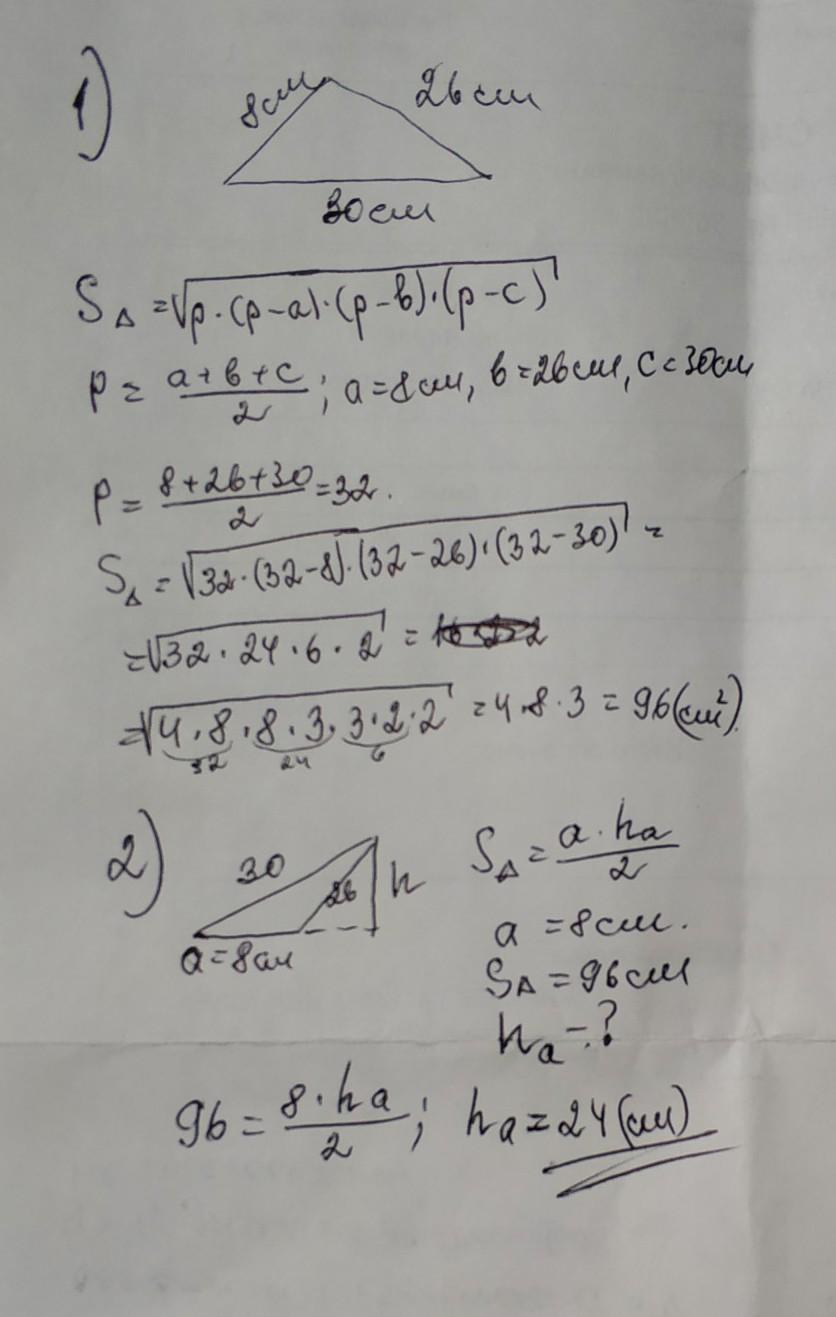 1)
8см
26см
30см
S△ = √p·(p-a)·(p-b)·(p-c)
P = a+b+c / 2 ; a=8см, b=26см, c=30см
P = 8+26+30 / 2 = 32.
S△ = √32·(32-8)·(32-26)·(32-30) =
= √32·24·6·2 =
= √4·8·8·3·3·2·2 = 4·8·3 = 96(см²).
32 24 6
2)
30
26
h
a=8см
S△ = a·ha / 2
a = 8см.
S△ = 96см
ha - ?
96 = 8·ha / 2 ; ha = 24(см)